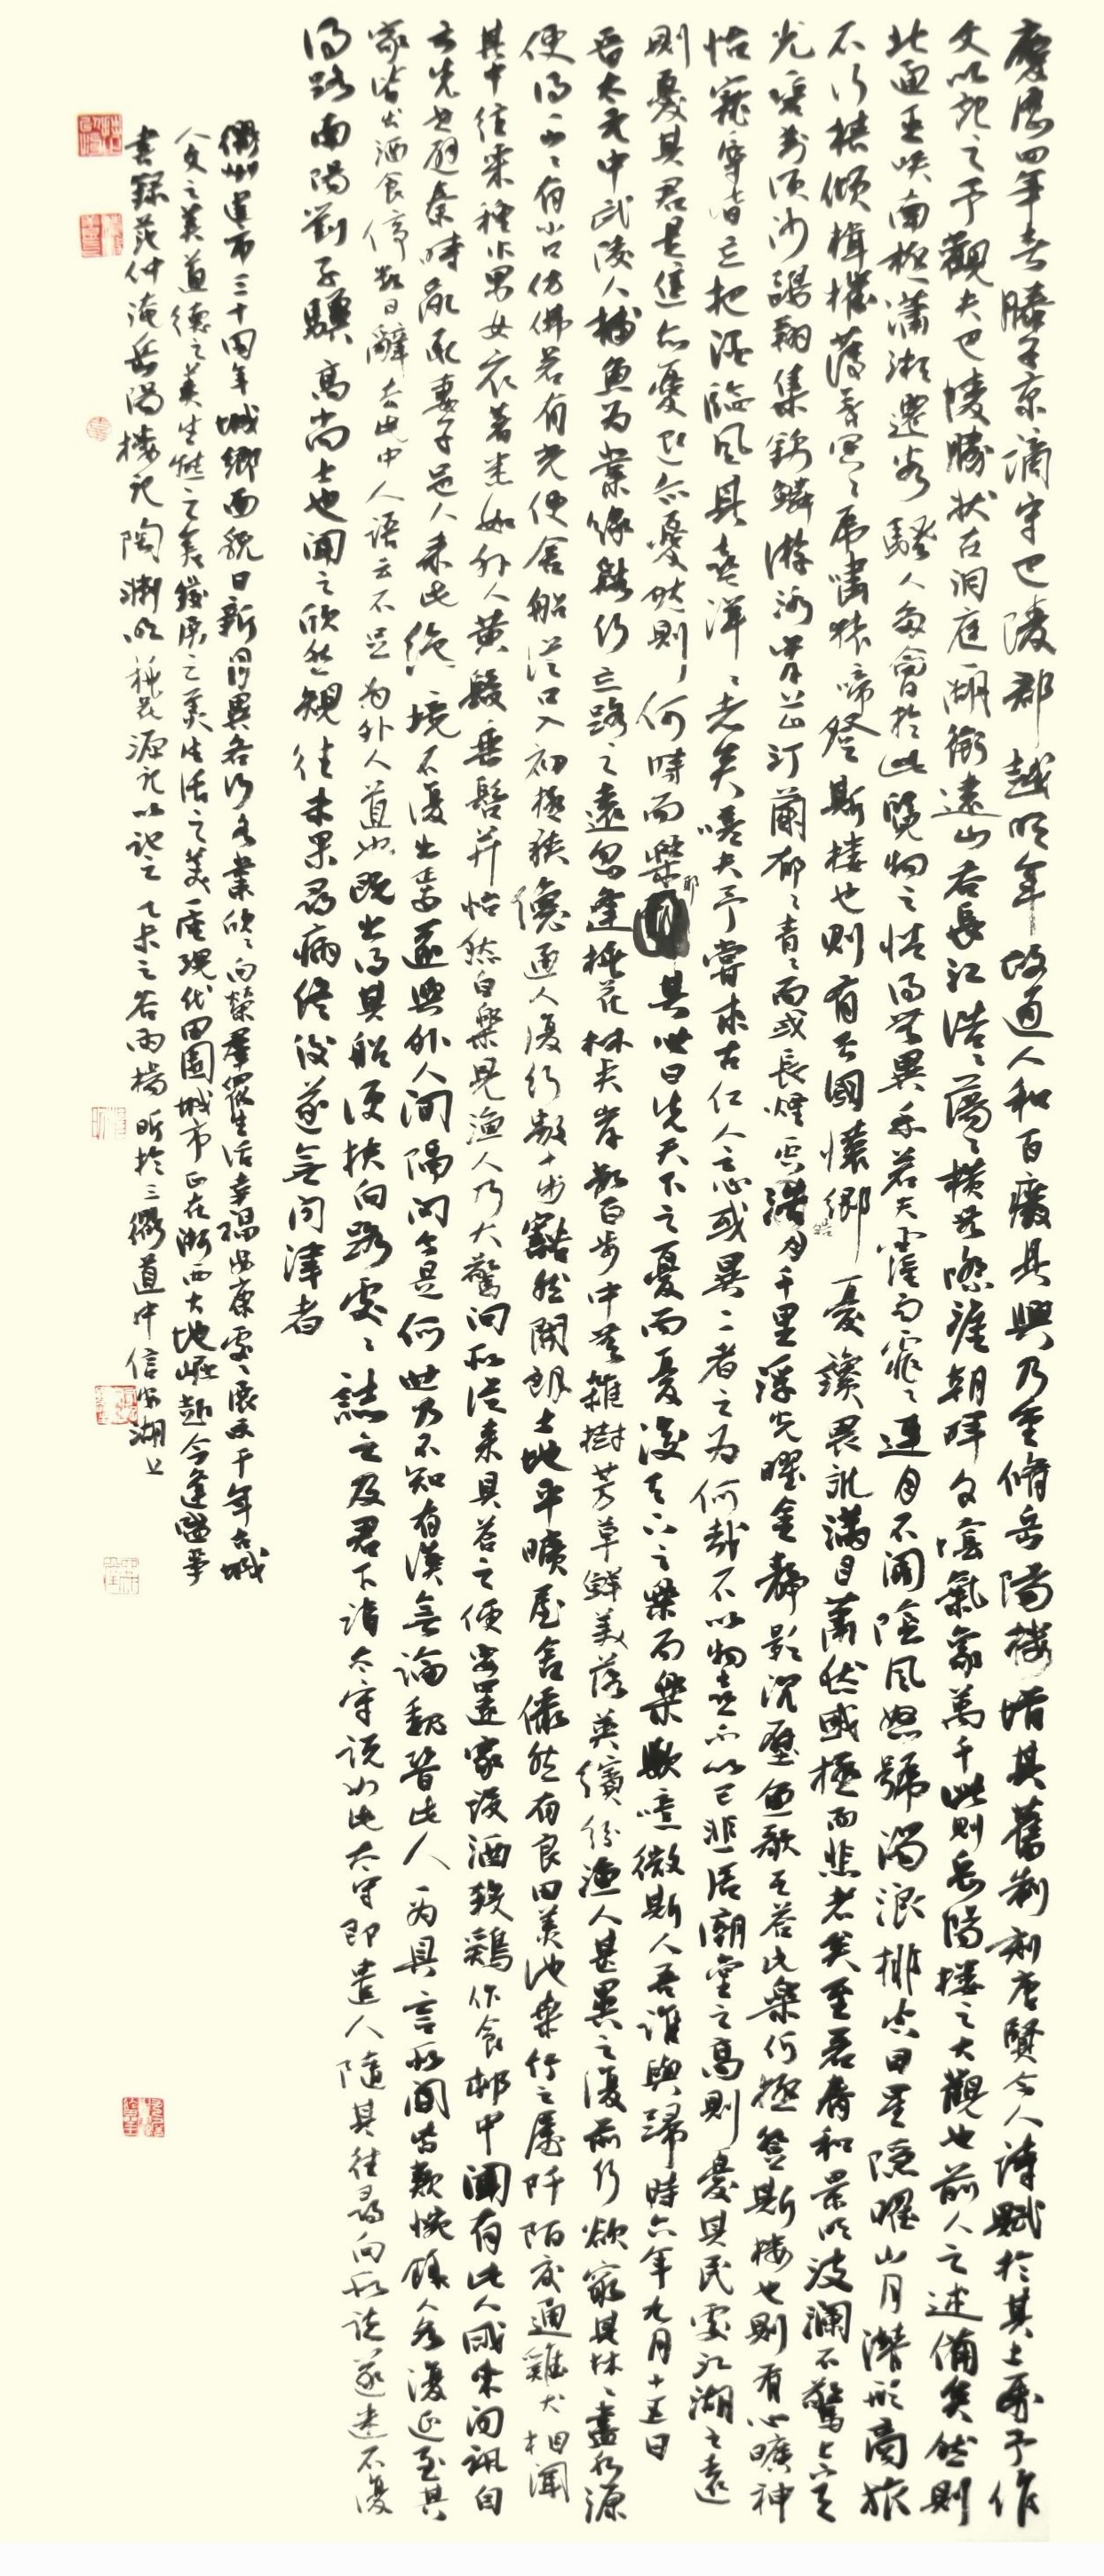 慶歷四年春滕子京謫守巴陵郡越明年政通人和百廢具興乃重脩岳陽樓增其舊制刻唐賢今人詩賦於其上屬予作
文以記之予觀夫巴陵勝狀在洞庭一湖銜遠山吞長江浩〻蕩〻橫無際涯朝暉夕陰氣象萬千此則岳陽樓之大觀也前人之述備矣然則
北通巫峽南極瀟湘遷客騷人多會於此覽物之情得無異乎若夫霪雨霏〻連月不開陰風怒號濁浪排空日星隱曜山月潛形商旅
不行檣傾楫摧薄暮冥〻虎嘯猿啼登斯樓也則有去國懷鄉憂讒畏譏滿目蕭然感極而悲者矣至若春和景明波瀾不驚上下天
光一碧萬頃沙鷗翔集錦鱗游泳岸芷汀蘭郁〻青〻而或長煙一空皓月千里浮光曜金靜影沉璧漁歌互答此樂何極登斯樓也則有心曠神
怡寵辱皆忘把酒臨風其喜洋〻者矣嗟夫予嘗求古仁人之心或異二者之為何哉不以物喜不以己悲居廟堂之高則憂其民處江湖之遠
則憂其君是進亦憂退亦憂然則何時而樂耶其必曰先天下之憂而憂後天下之樂而樂歟噫微斯人吾誰與歸時六年九月十五日
晉太元中武陵人捕魚為業緣谿行忘路之遠忽逢桃花林夾岸數百步中無雜樹芳草鮮美落英繽紛漁人甚異之復前行欲窮其林〻盡水源
便得一山〻有小口仿佛若有光便舍船從口入初極狹纔通人復行數十步豁然開朗土地平曠屋舍儼然有良田美池桑竹之屬阡陌交通雞犬相聞
其中往來種作男女衣著悉如外人黃髮垂髫并怡然自樂見漁人乃大驚問所從來具答之便要還家設酒殺鷄作食邨中聞有此人咸來問訊自
云先世避秦時亂率妻子邑人來此絕境不復出焉遂與外人間隔問今是何世乃不知有漢無論魏晉此人一為具言所聞皆歎惋餘人各復延至其
家皆出酒食停數日辭去此中人語云不足為外人道也既出得其船便扶向路處〻誌之及君下詣太守說如此太守即遣人隨其往尋向所誌遂迷不復
得路南陽劉子驥高尚士也聞之欣然規往未果尋病終後遂無問津者
衢州建市三十周年城鄉面貌日新月異各行各業欣〻向榮羣眾生活幸福安康處〻展示千年古城
人文之美道德之美生態之美發展之美生活之美一座現代田園城市正在浙西大地崛起今逢盛事
書錄范仲淹岳陽樓記陶淵明桃花源記以記之乙未之谷雨楊昕於三衢道中信安湖上